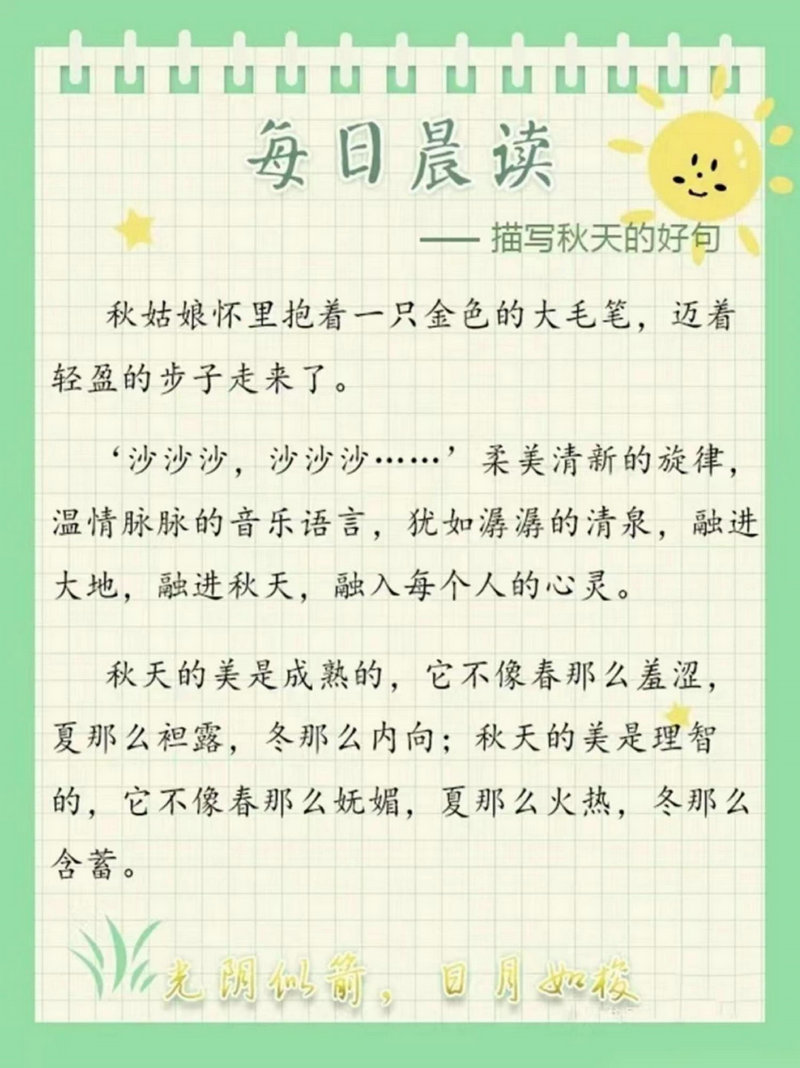 每日晨读
—— 描写秋天的好句
秋姑娘怀里抱着一只金色的大毛笔，迈着
轻盈的步子走来了。
‘沙沙沙，沙沙沙……’柔美清新的旋律，
温情脉脉的音乐语言，犹如潺潺的清泉，融进
大地，融进秋天，融入每个人的心灵。
秋天的美是成熟的，它不像春那么羞涩，
夏那么袒露，冬那么内向；秋天的美是理智
的，它不像春那么妩媚，夏那么火热，冬那么
含蓄。
光阴似箭，日月如梭